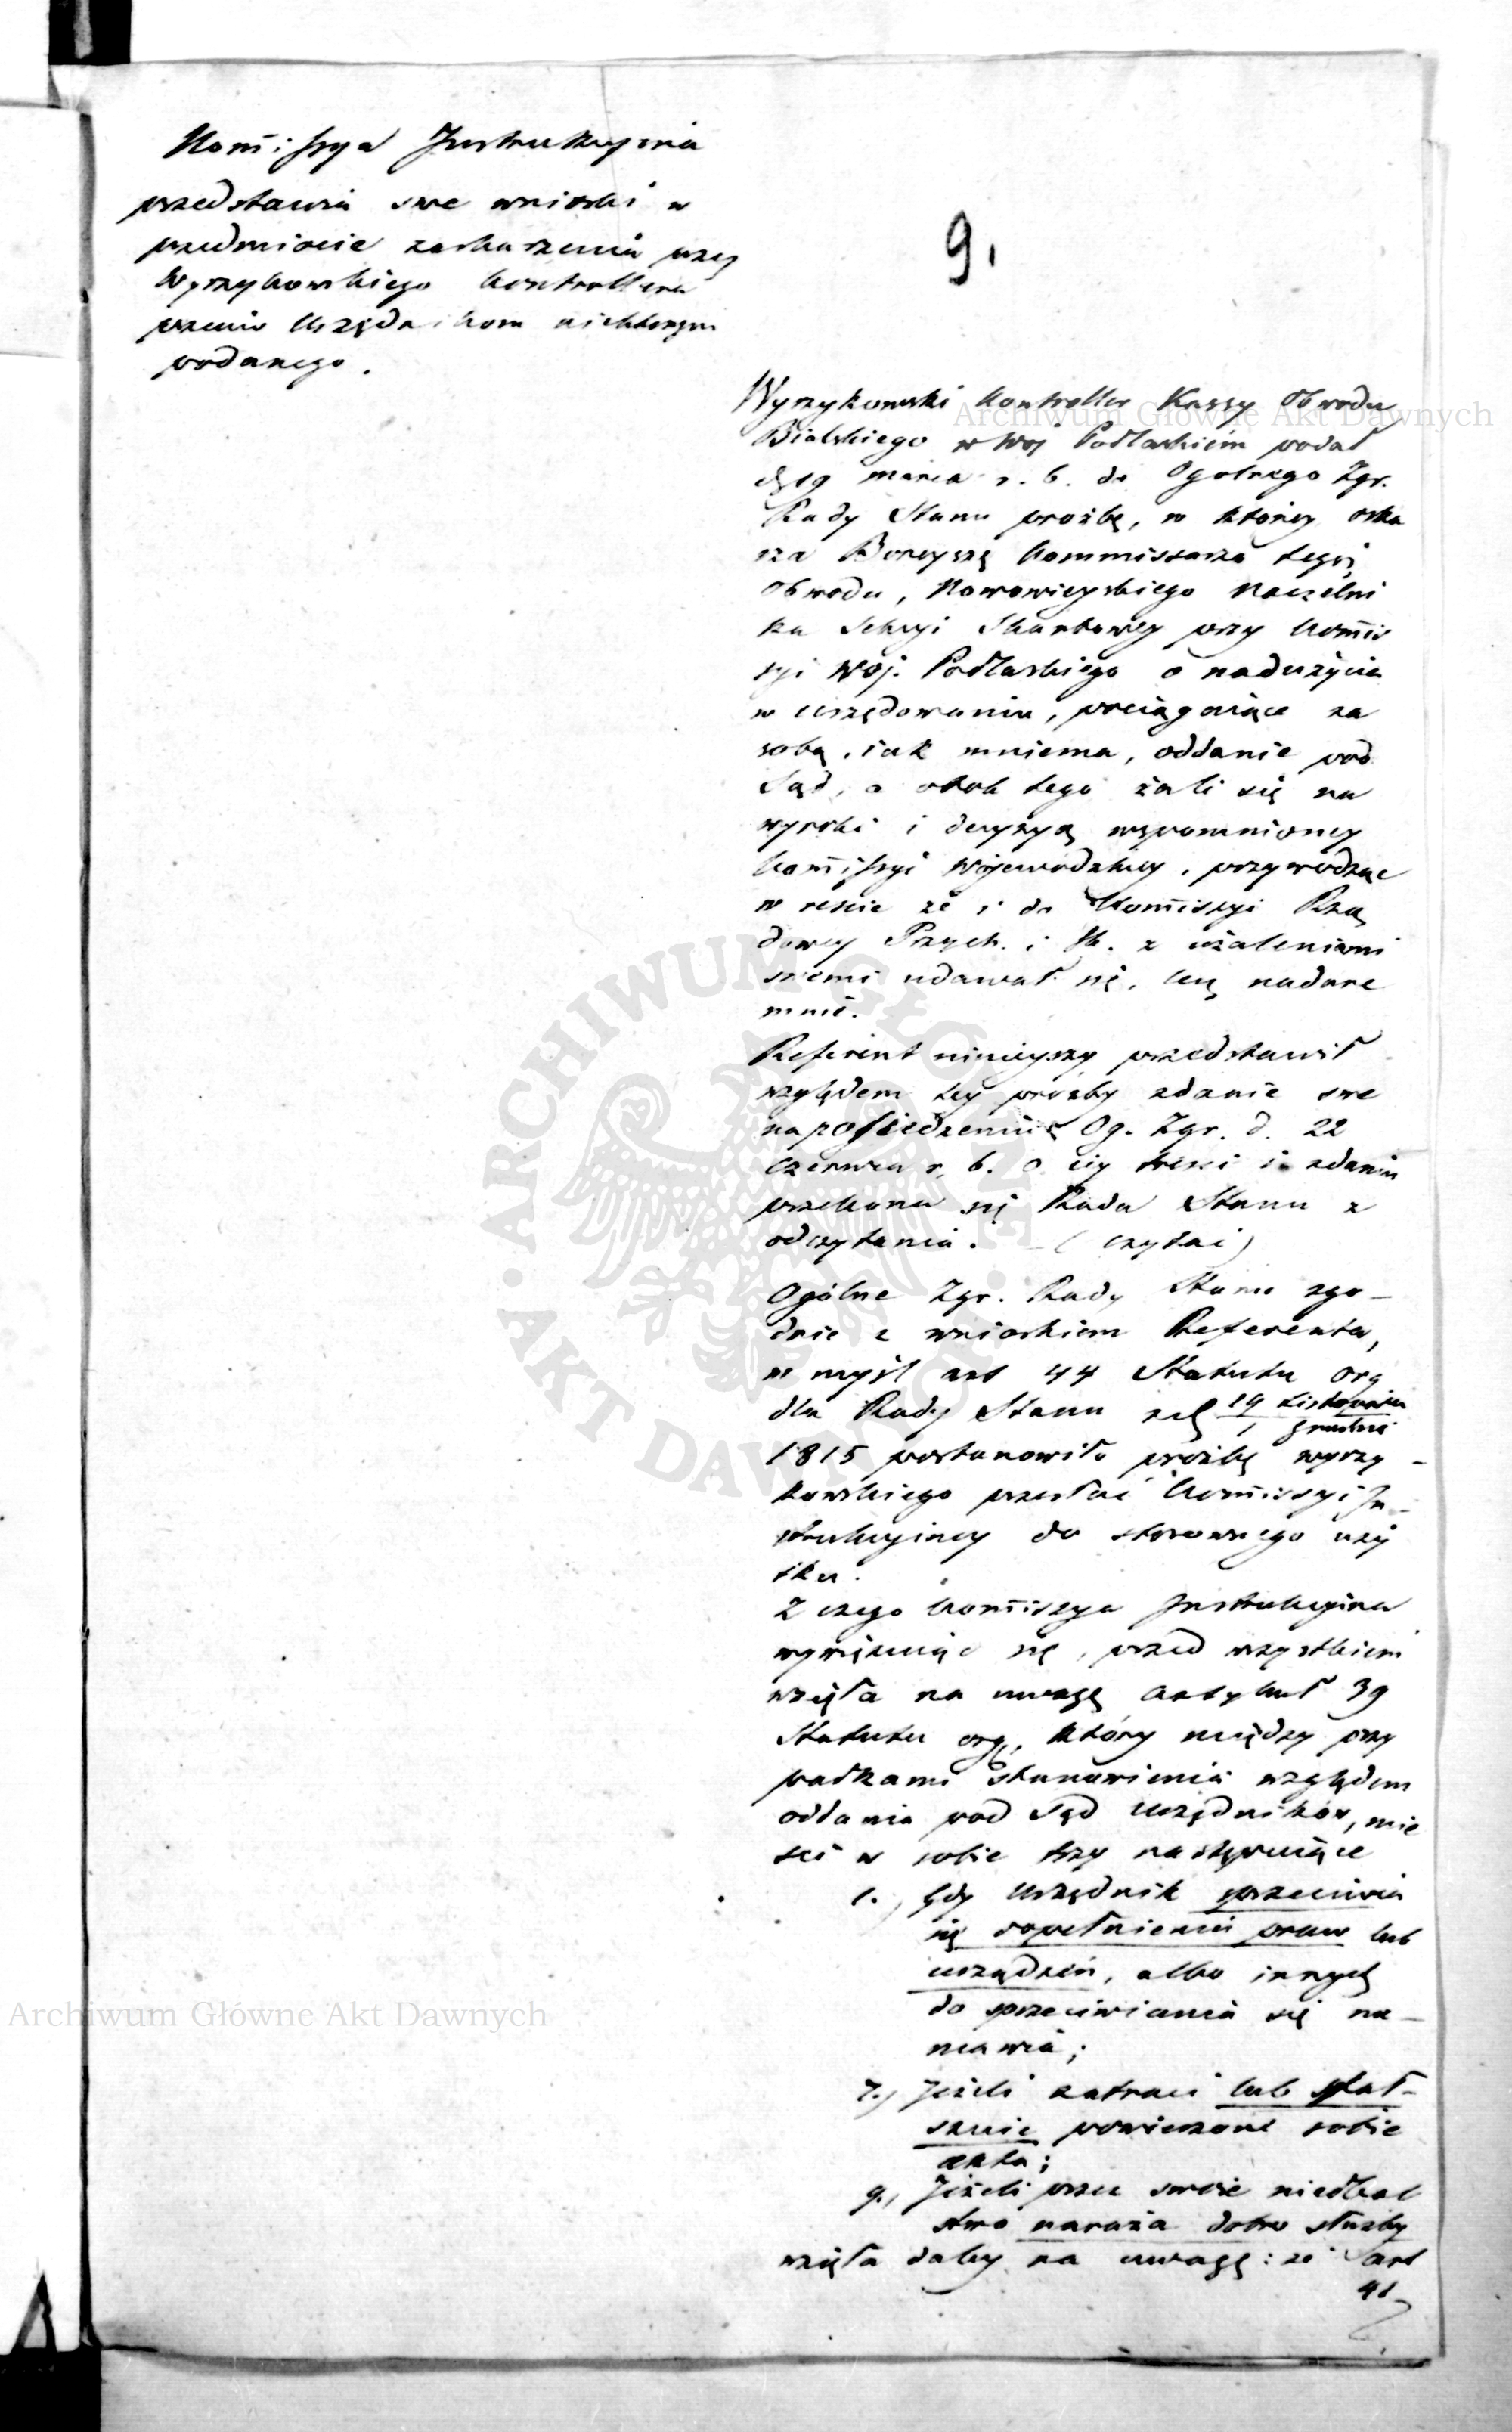 Komissya Instrukcyina
przedstawia swe wnioski w
przedmiocie zaskarzenia przez
Wyrzykowskiego kontrollera
przeciw Urzędnikom niektorym
podanego.
9.
Wyrzykowski kontroller Kassy Obwodu
Bialskiego w Woj Podlaskiém podał
d 19 marca r. b. do Ogolnego Zgr.
Rady Stanu prozbę, w ktorey oska
rza kommissarza tegoż
Obwodu, Nowowieyskiego Naczelni
ka Sekcyi Skarbowey przy komis
syi Woj. Podlaskiego o nadużycia
w urzędowaniu, pociągaiące za
sobą, iak mniema, oddanie pod
Sąd, a obok tego żali się na
wyroki i decyzyą wspomnioney
komissyi Wojewodzkiey, przywodząc
w reście że i do Komissyi Rzą
dowey Przych. i Sk. z użaleniami
swemi udawał się, lecz nadare
mnie.
Referent ninieyszy przedstawił
względem tey prozby zdanie swe
na posiedzeniu Og. Zgr. d. 22
czerwca r. b. o iey treści i zdaniu
przekona się Rada Stanu z
odczytania. - (czytać)
Ogólne Zgr. Rady Stanu zgo-
dnie z wnioskiem Referenta,
w myśl art 44 Statutu org
dla Rady Stanu z d 19 Listopada
1 Grudnia
1815 postanowiło prozbę Wyrzy-
kowskiego przesłać komissyi In-
strukcyiney do stosownego uży
tku.
Z czego komissya Instrukcyina
wywięzuiąc się, przed wszystkiem
wzięła na uwagę artykuł 39
Statutu org, który między przy
padkami stanowienia względem
oddania pod Sąd urzędników, mie
ści w sobie trzy następuiące
1., Gdy Urzędnik sprzeciwia
się dopełnieniu praw lub
urządzeń, albo innych
do sprzeciwiania się na-
mawia;
7., Jeżeli zatraci lub sfał-
szuie powierzone sobie
akta;
9., Jeżeli przez swoie niedbal
stwo naraża dobro służby
wzięła daley na uwagę: że art
41
Archiwum Główne Akt Dawnych
Archiwum Główne Akt Dawnych
ARCHIWUM GŁÓWNE AKT DAWNYCH